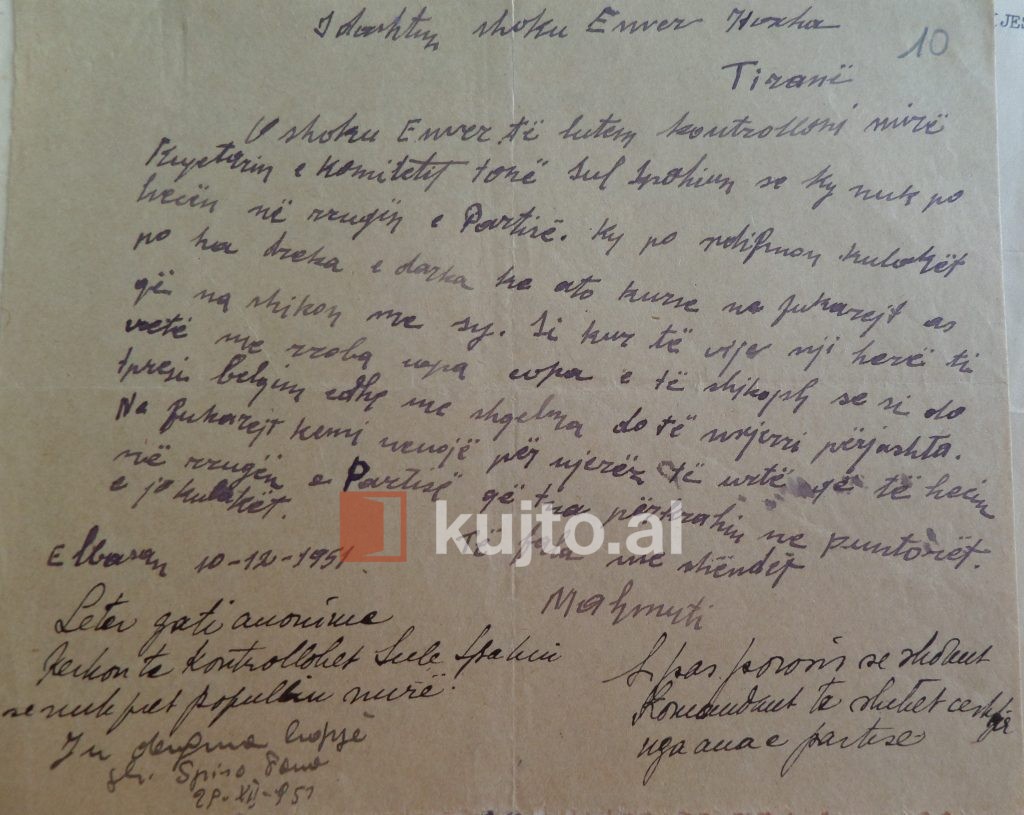 I dashtun shoku Enver Hoxha
10
JES
Tiranë
O shoku Enver të lutem kontrolloni mirë
Kryetarin e Komitetit tonë Sul Spohiun se ky nuk po
hecën në rrugën e Partisë. Ky po ndifmon kulakët
po ha dreka e darka ke ato kurse ne fukarejt as
që na shikon me sy. Si kur të vijer nji herë ti
vetë me rroba copa copa e të shikojsh se si do
tpresi belqim edhe me shqelma do të nxjerri përjashta.
Na fukarejt kemi nevojë për njerëz të urtë që të hecin
në rrugën e Partisë që tna përkrahin ne puntorët.
e jo kulakët.
kujto.al
Të fala me shëndet
Elbasan 10-12-1951
Mahmuti
Leter gati anonime
Kerkon te Kontrollohet Sule Spahiu
se nuk pret popullin mirë.
Ju dergua kopje
Spiro Pano
29-XII-951
Sipas porosis se shokut
Komandant te shihet ceshtja
nga ana e partise